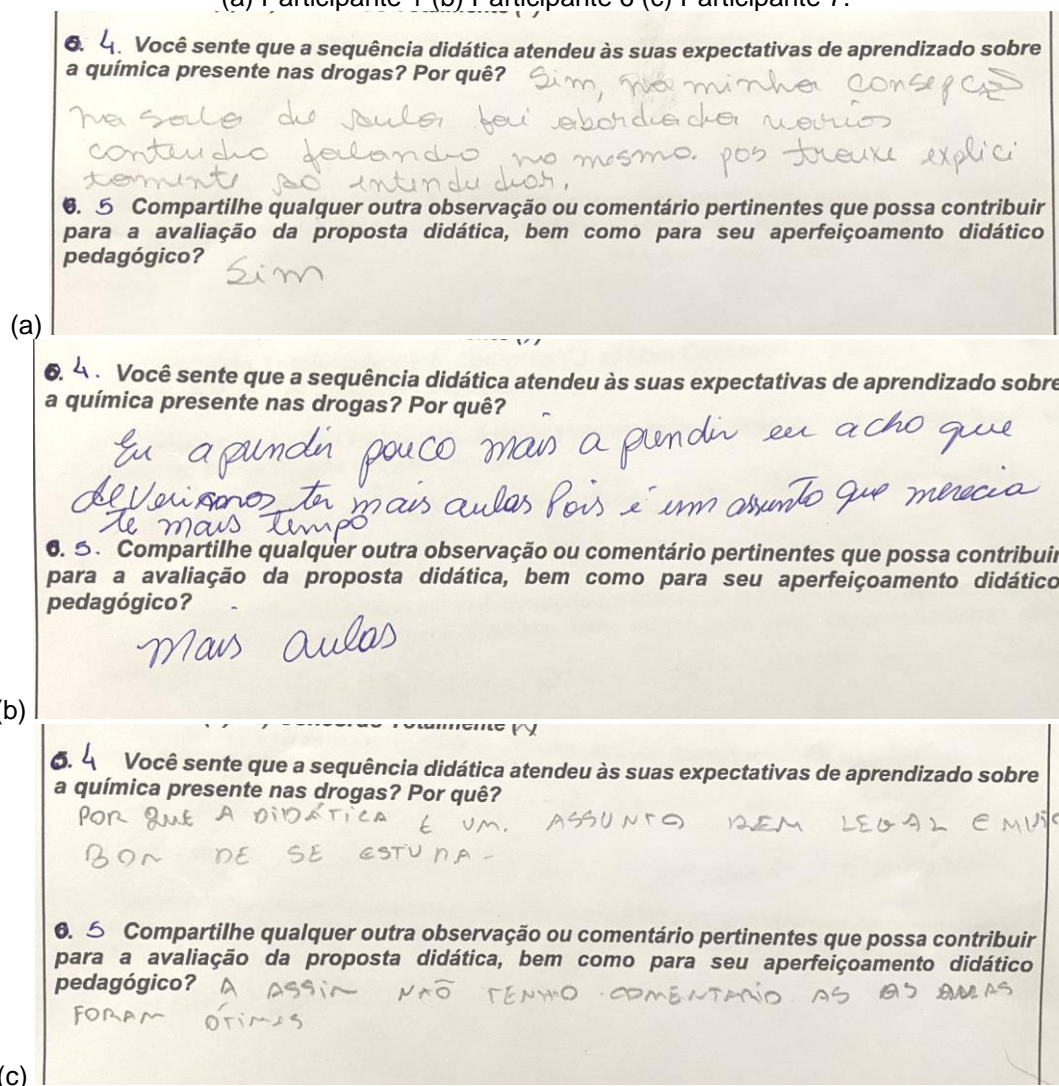 (a) Participante 1 (b) Participante 6 (c) Participante 7.
6. 4. Você sente que a sequência didática atendeu às suas expectativas de aprendizado sobre
a química presente nas drogas? Por quê? Sim, na minha consepção
na sala de aula foi abordada varios
conteudo falando no mesmo. pos trouxe explici
tomente ao entendedor.
6. 5 Compartilhe qualquer outra observação ou comentário pertinentes que possa contribuir
para a avaliação da proposta didática, bem como para seu aperfeiçoamento didático
pedagógico? Sim
(a)
6. 4. Você sente que a sequência didática atendeu às suas expectativas de aprendizado sobre
a química presente nas drogas? Por quê?
Eu apundir pouco mais a prendir eu acho que
deveriamos ter mais aulas Pois é um assunto que merecia
te mais tempo
6. 5. Compartilhe qualquer outra observação ou comentário pertinentes que possa contribuir
para a avaliação da proposta didática, bem como para seu aperfeiçoamento didático
pedagógico?
mais aulas
(b)
Totalmente
6. 4 Você sente que a sequência didática atendeu às suas expectativas de aprendizado sobre
a química presente nas drogas? Por quê?
POR QUE A DIDÁTICA E UM. ASSUNTO BEM LEGAL E MUIO
BON DE SE ESTUDA-
6. 5 Compartilhe qualquer outra observação ou comentário pertinentes que possa contribuir
para a avaliação da proposta didática, bem como para seu aperfeiçoamento didático
pedagógico? A ASSIN NÃO TENHO COMENTARIO AS AS AULAS
FORAM ÓTIMAS
(c)